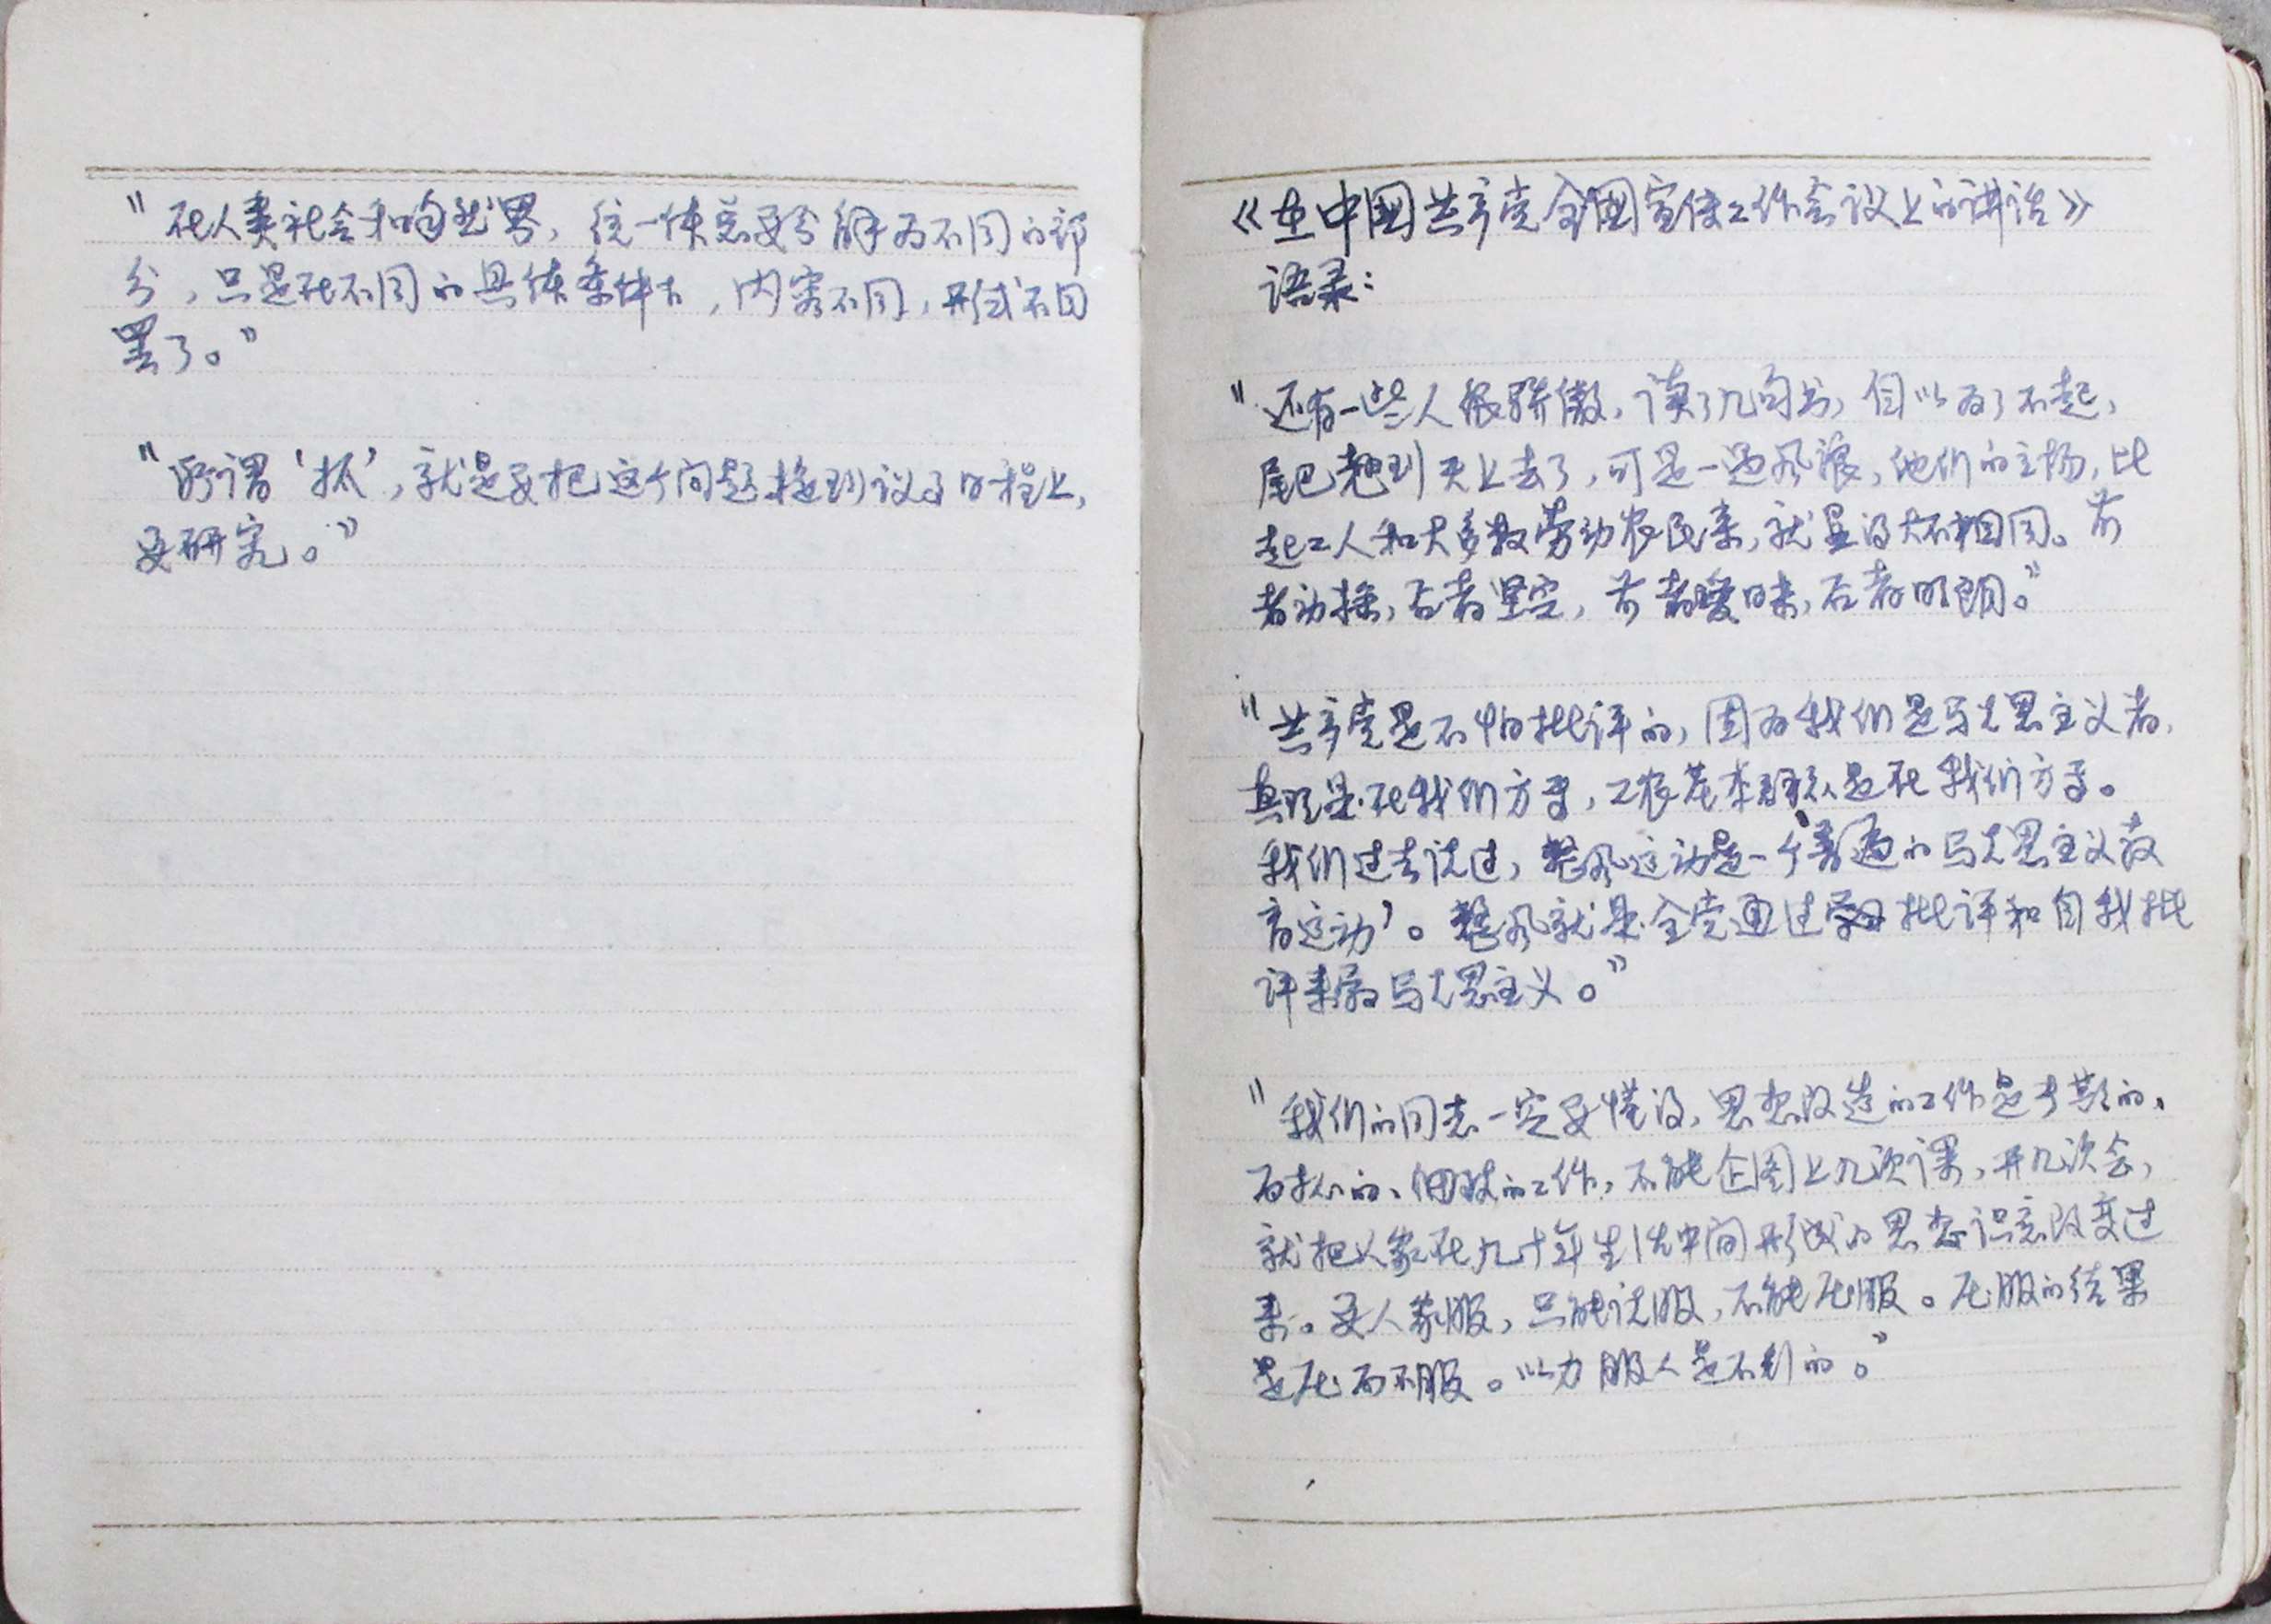 “在人类社会和自然界，统一体总要分解为不同的部
分，只是在不同的具体条件下，内容不同，形式不同
罢了。”
“所谓‘抓’，就是要把这个问题提到议事日程上，
要研究。”
《在中国共产党全国宣传工作会议上的讲话》
语录：
“还有一些人很骄傲，读了几句书，自以为了不起，
尾巴翘到天上去了，可是一遇风浪，他们的立场，比
起工人和大多数劳动农民来，就显得大不相同。前
者动摇，后者坚定，前者暧昧，后者明朗。”
“共产党是不怕批评的，因为我们是马克思主义者，
真理是在我们方面，工农基本群众是在我们方面。
我们过去说过，整风运动是一个‘普遍的马克思主义教
育运动’。整风就是全党通过批评和自我批
评来学习马克思主义。”
“我们的同志一定要懂得，思想改造的工作是长期的、
耐心的、细致的工作，不能企图上几次课，开几次会，
就把人家在几十年生活中间形成的思想意识改变过
来。要人家服，只能说服，不能压服。压服的结果
是压而不服。以力服人是不行的。”